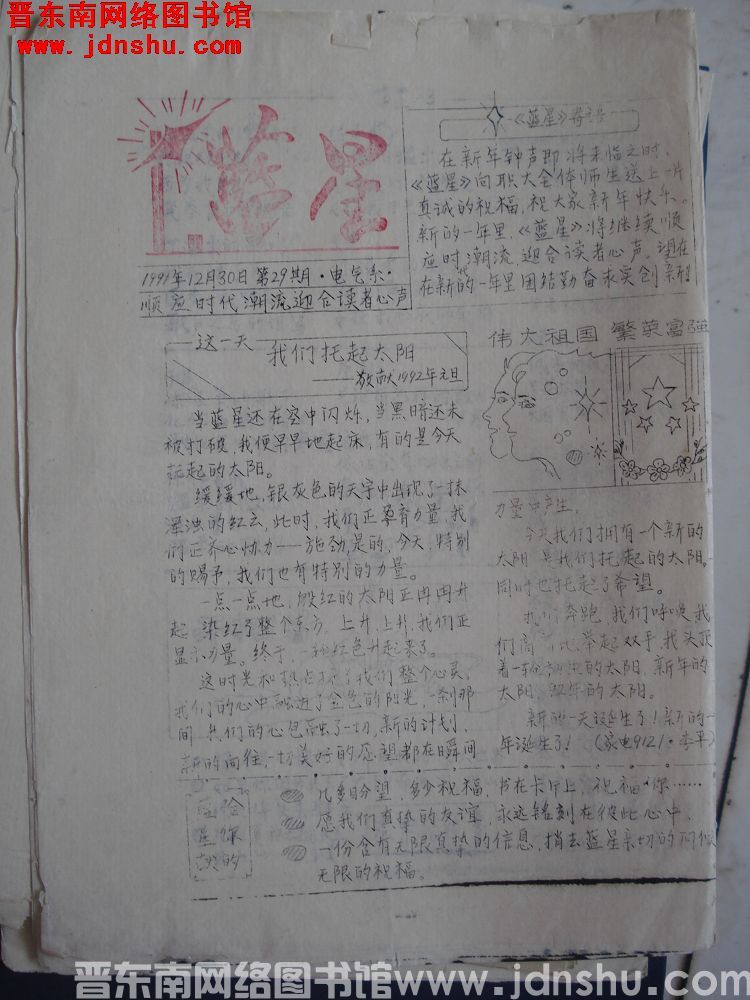 晋东南网络图书馆
www.jdnshu.com
蓝星
1991年12月30日 第29期·电气系·
顺应时代潮流迎合读者心声
《蓝星》寄语
在新年钟声即将来临之时,
《蓝星》向职大全体师生送上一片
真诚的祝福,祝大家新年快乐。
新的一年里《蓝星》将继续顺
应时潮流 迎合读者心声。望在
代
在新的一年里团结勤奋求实创新
这一天
我们托起太阳
——敬献1992年元旦
当蓝星还在空中闪烁,当黑暗还未
被打破,我便早早地起床,有的是今天
托起的太阳。
缓缓地,银灰色的天宇中出现了一抹
浑浊的红云,此时,我们正孕育力量,我
们正齐心协力——施劲,是的,今天,特别
的赐予,我们也有特别的力量。
一点一点地,殷红的太阳正冉冉升
起 染红了整个东方,上升,上升,我们正
显示力量。终于,一抹红色升起来了。
这时光和热点我们整个心灵,
我们的心中融进了金色的阳光,一刹那
间 我们的心包融了一切,新的计划,
新的向往,一切美好的愿望都在瞬间
伟大祖国 繁荣富强
力量中产生。
今天我们拥有一个新的
太阳 是我们托起的太阳。
同时也托起了希望。
我们奔跑,我们呼唤 我
们高 举起双手,我头顶
着一轮 的太阳,新年的
太阳
新的一天诞生了!新的一
年诞生了! (家电9121·李平)
几多盼望,多少祝福,书在卡片上,祝福你……
愿我们真挚的友谊,永远铭刻在彼此心中,
一份含有无限真挚的信息,捎去蓝星亲切的问候
无限的祝福。
晋东南网络图书馆www.jdnshu.com